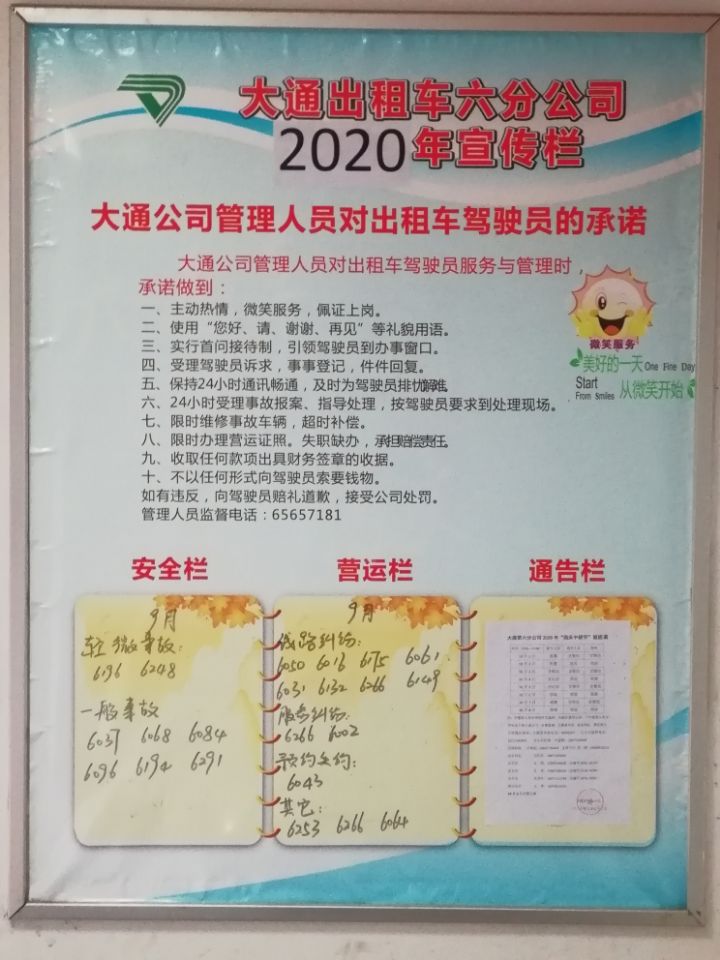 大通出租车六分公司
2020年宣传栏
大通公司管理人员对出租车驾驶员的承诺
大通公司管理人员对出租车驾驶员服务与管理时，
承诺做到：
一、主动热情，微笑服务，佩证上岗。
二、使用“您好、请、谢谢、再见”等礼貌用语。
三、实行首问接待制，引领驾驶员到办事窗口。
四、受理驾驶员诉求，事事登记，件件回复。
五、保持24小时通讯畅通，及时为驾驶员排忧解难。
六、24小时受理事故报案、指导处理，按驾驶员要求到处理现场。
七、限时维修事故车辆，超时补偿。
八、限时办理营运证照。失职缺办，承担赔偿责任。
九、收取任何款项出具财务签章的收据。
十、不以任何形式向驾驶员索要钱物。
如有违反，向驾驶员赔礼道歉，接受公司处罚。
管理人员监督电话：65657181
微笑服务
美好的一天 One Fine Day
Start
From Smiles 从微笑开始
安全栏
9月
轻微事故：
6196 6248
一般事故
6037 6068 6084
6096 6194 6291
营运栏
9月
线路纠纷：
6050 6016 6175 6061
6031 6132 6266 6149
服务纠纷：
6266 6002
预约文约：
6043
其它：
6253 6266 6064
通告栏